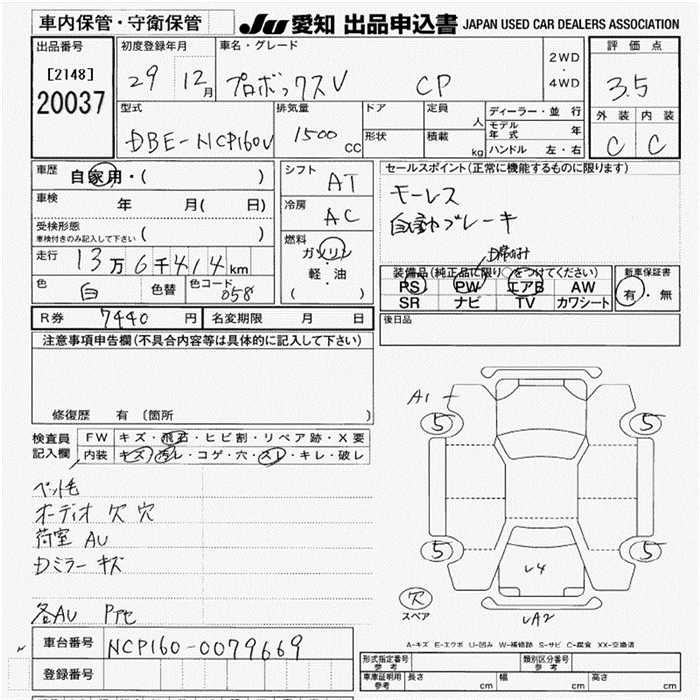 車内保管・守衛保管
JU 愛知 出品申込書 JAPAN USED CAR DEALERS ASSOCIATION
出品番号
[2148]
20037
初度登録年月
29 12月
車名・グレード
プロボックスV CP
2WD
・
4WD
評価点
3.5
外装 内装
C C
型式
DBE-NCP160V
排気量
1500 CC
ドア
形状
定員 人
積載 kg
ディーラー・並行
モデル年式 年
ハンドル 左・右
車歴
自家用・( )
車検 年 月( 日)
受検形態
車検付きのみ記入して下さい ( )
走行 13万6千414km
色 白 色替 色コード 058
シフト AT
冷房 AC
燃料
ガソリン
軽・油
( )
セールスポイント(正常に機能するものに限ります)
モーレス
自動ブレーキ
装備品(純正品に限り○をつけてください)
PS PW エアB AW
SR ナビ TV カワシート
新車保証書
有・無
R券 7440 円 名変期限 月 日
後日品
注意事項申告欄(不具合内容等は具体的に記入して下さい)
修復歴 有 〔箇所 〕
検査員記入欄
FW キズ・飛石・ヒビ割・リペア跡・X要
内装 キズ・汚レ・コゲ・穴・スレ・キレ・破レ
ペット毛
オーディオ欠 穴
荷室 AU
Dミラー キズ
各AU Pアセ
A1
5 5
5 5
レ4
欠
スペア
レA2
A-キズ E-エクボ U-凹み W-補修跡 S-サビ C-腐食 XX-交換済
車台番号 NCP160-0079669
登録番号
形式指定番号 参考
類別区分番号 参考
車庫証明用 参考
長さ cm 幅 cm 高さ cm